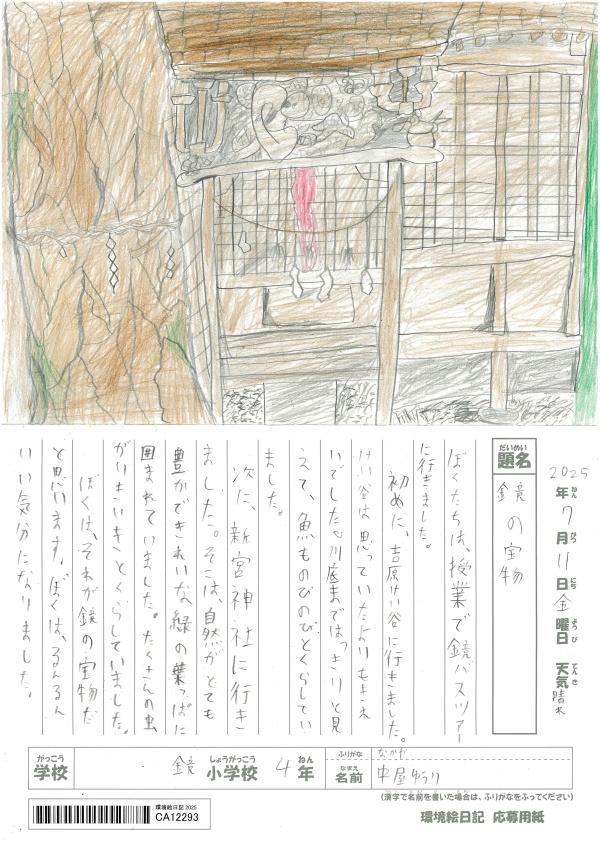 2025年7月11日金曜日 天気 晴れ
ねん がつ にち ようび てんき
だいめい
題名
鏡の宝物
ぼくたちは、授業で鏡バスツアー
に行きました。
初めに、吉原けい谷に行きました。
けい谷は思っていたよりもきれ
いでした。川底まではっきりと見
えて、魚ものびのびとくらしてい
ました。
次に、新宮神社に行き
ました。そこは、自然がとても
豊かできれいな緑の葉っぱに
囲まれていました。たくさんの虫
がいきいきとくらしていました。
ぼくは、それが鏡の宝物だ
と思います。ぼくは、るんるん
いい気分になりました。
がっこう
学校
鏡 小学校 4年
しょうがっこう ねん
ふりがな
なまえ
名前
中屋ゆうり
(漢字で名前を書いた場合は、ふりがなをふってください)
環境絵日記 2025
CA12293
環境絵日記 応募用紙